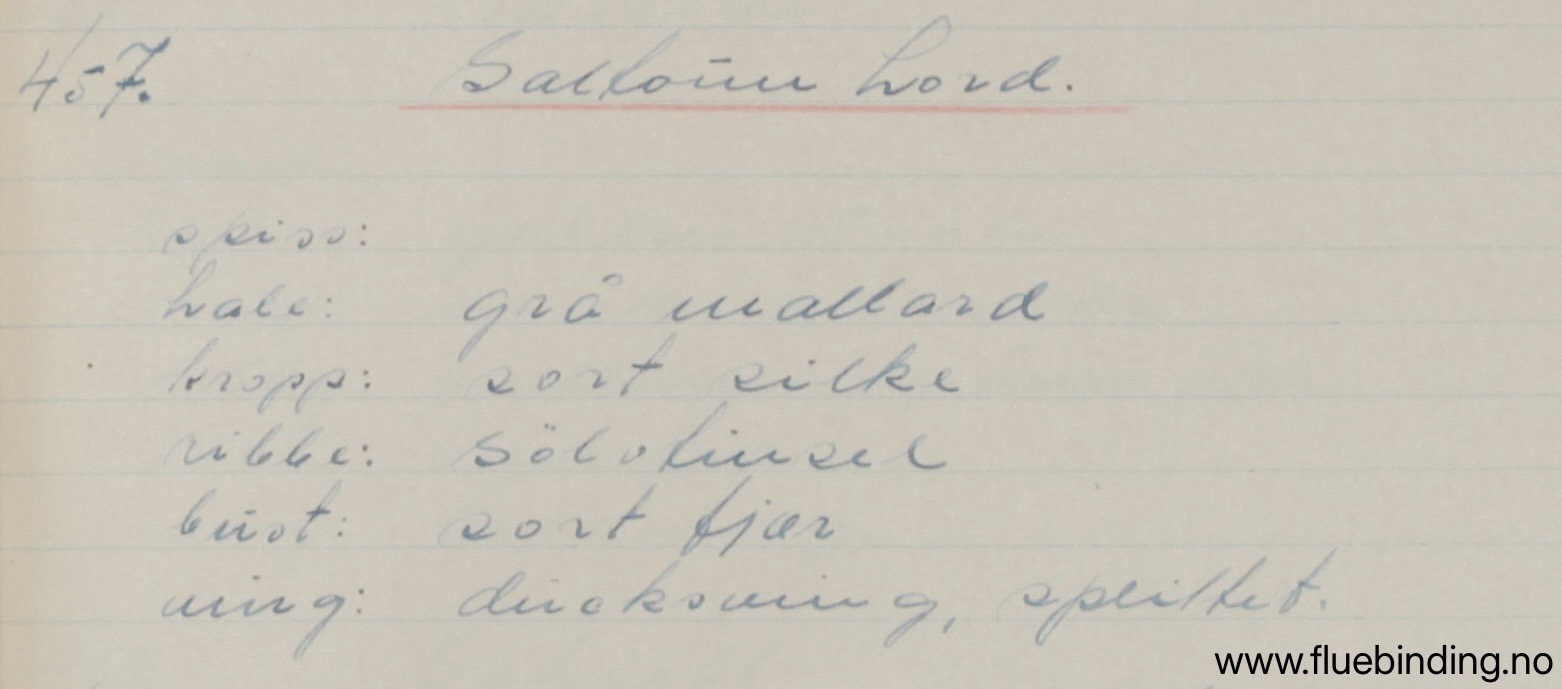 457. Saltoun Lord.
spiss:
hale: grå mallard
kropp: sort silke
ribbe: sölvtinsel
bust: sort fjær
ving: duckswing, splittet.
www.fluebinding.no